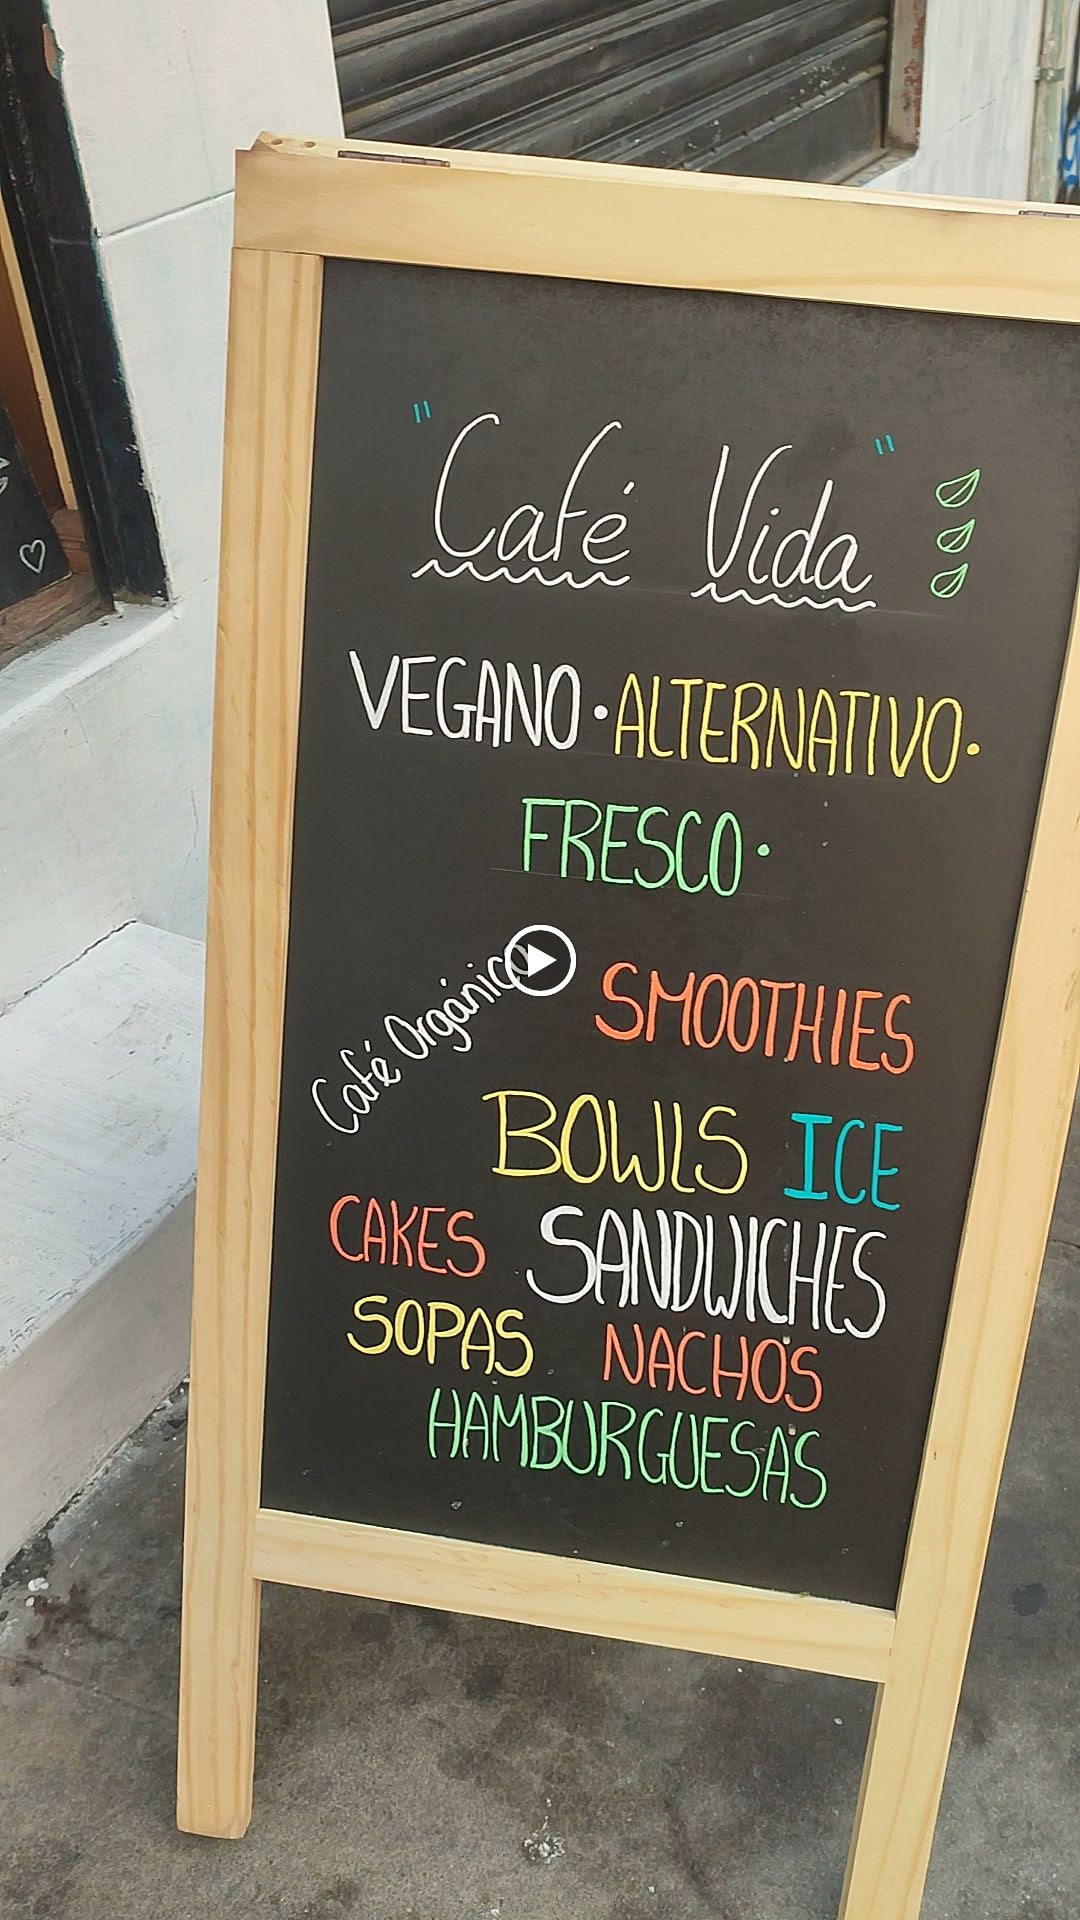 "Café Vida"
VEGANO · ALTERNATIVO ·
FRESCO ·
Café Orgánico
SMOOTHIES
BOWLS ICE
CAKES SANDWICHES
SOPAS NACHOS
HAMBURGUESAS